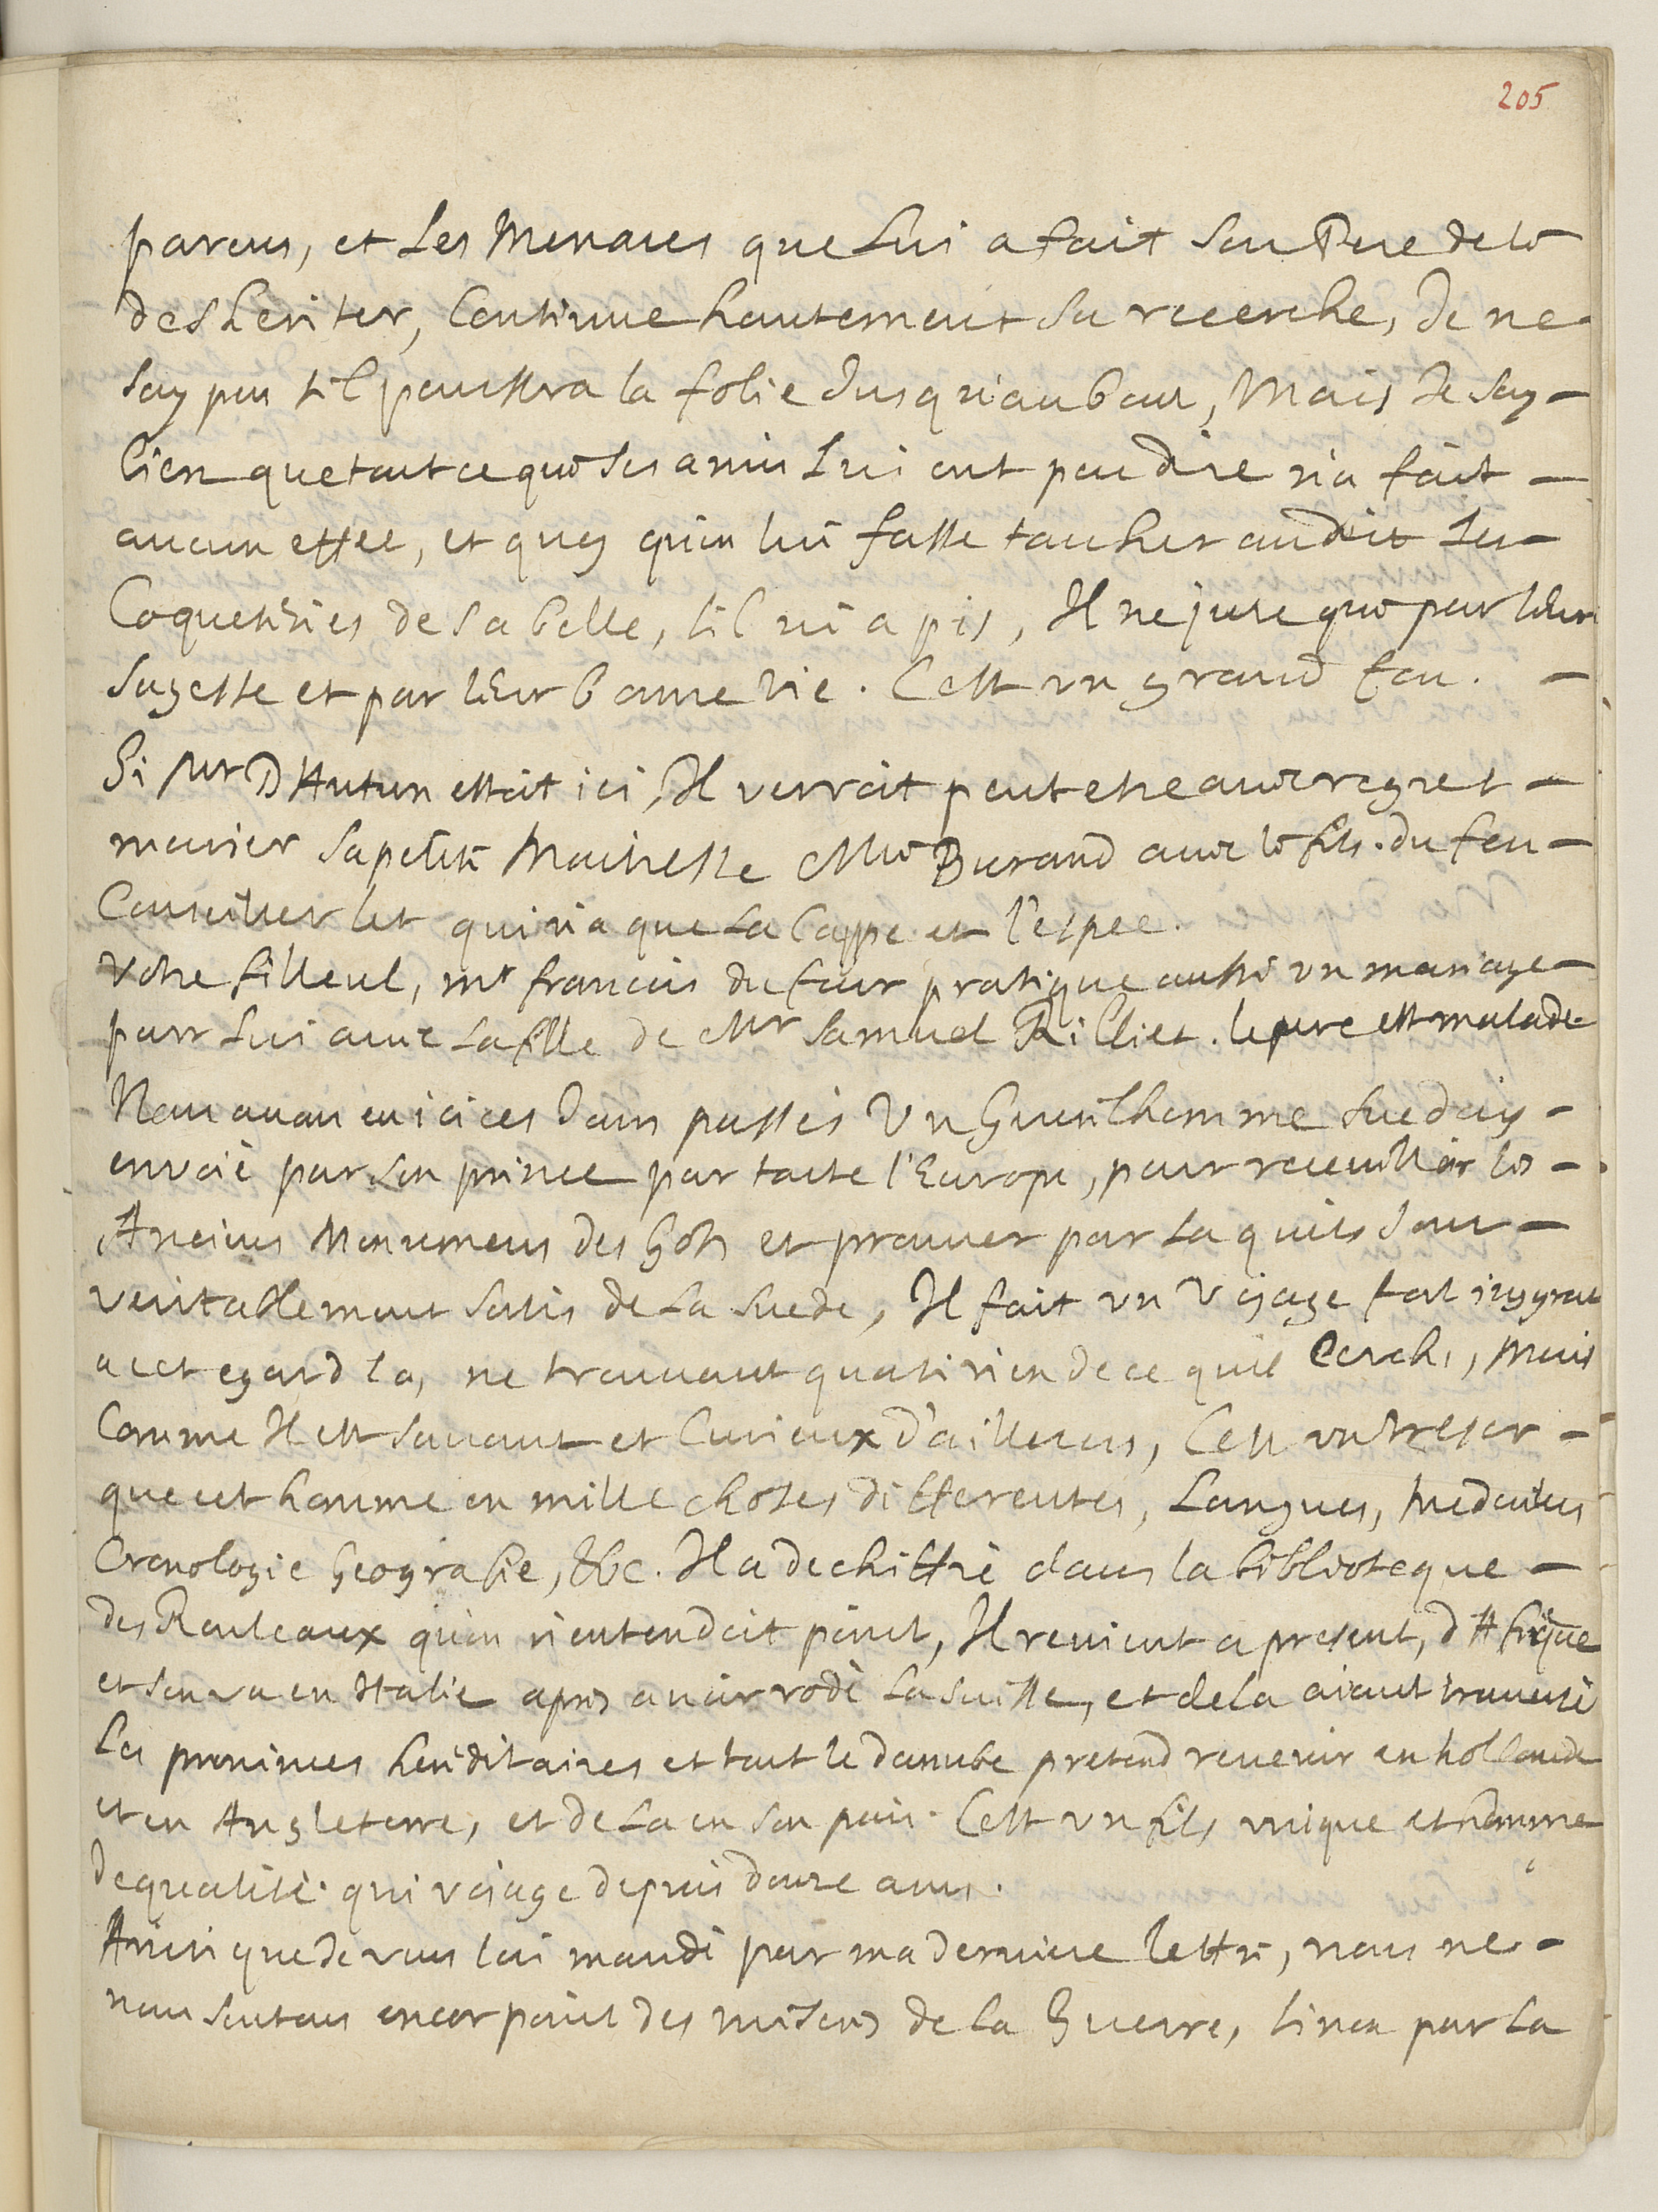 205
parens, et Les Menaces que Lui a fait son Pere de le
desheriter, Continue hautement sa recerche, Je ne
say pas s'il poussera la folie Jusqu'au bout, Mais Je say
bien que tout ce que ses amis Lui ont peu dire n'a fait
aucun effet, et quoy qu'on lui fasse toucher au doit les
Coquetteries de sa belle, s'il ni a pis, Il ne jure que par leur
sagesse et par lEur bonne vie. Cest un grand fou.
Si Mr D'Hutun estoit ici, Il verroit peut etre avec regret
marier sa petite Maitresse Mlle Durand avec le fils du feu
Conseiller qui n'a que La Cappe et l'espee.
Votre filleul, mr francois du four pratique aussi un mariage
pour Lui avec La fille de Mr Samuel Rilliet. le pere est malade
Nous avons eu ici ces Jours passés Un Gentilhomme suedois
envoié par son prince par toute l'Europe, pour receuillir les
Anciens Monumens des Gots et prouver par La quils sont
veritablement sortis de La suede, Il fait un Voyage fort inggrat
a cet egard la, ne trouvant quasi rien de ce quil Cerche, Mais
Comme Il est savant et Curieux d'ailleurs, Cest un tresor
que cet homme en mille choses differentes, Langues, Medailles
Cronologie Geografie, &c. Il a dechiffré dans la biblioteque
des Rouleaux qu'on n'entendoit point, Il revient a present, d'Afrique
et sen va en Italie apres avoir rodé La Suisse, et de La aiant traversé
Les provinces hereditaires et tout le danube pretend revenir en hollande
et en Angleterre, et de La en son pais. Cest un fils unique et homme
de qualité qui voiage depuis douze ans.
Ainsi que Je vous lai mandé par ma derniere lettre, nous ne
nous sentons encor point des miseres de La Guerre, sinon par La